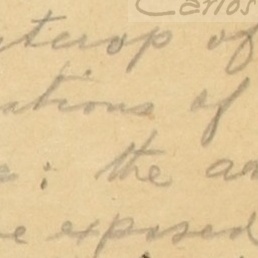 Carlos
outcrop of
ations of
: the
exposed